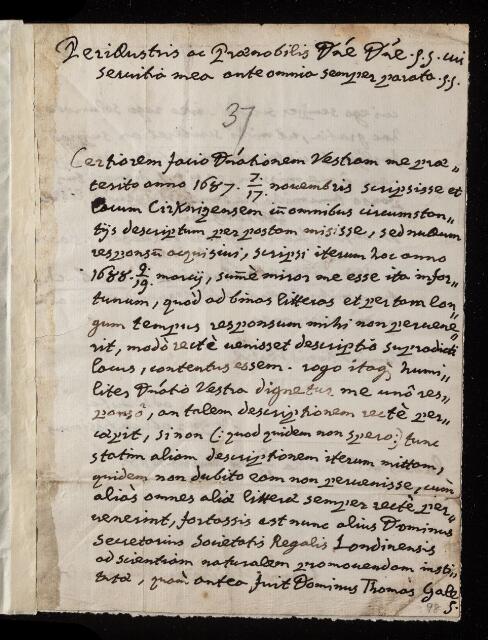 Perillustris ac Prænobilis Dñe Dñe S.S. cui
servitia mea ante omnia semper parata. S.S.
37
Certiorem facio Dñationem Vestram me præ„
terito anno 1687. 7./17. novembris scripsisse et
lacum Cirknizensem cũ omnibus circumstan„
tijs descriptum per postam misisse, sed nullum
responsũ acquisivi, scripsi iterum hoc anno
1688. 9./19. marcij, sum̃e miror me esse ita infor„
tunum, quod ad binas litteras et per tam lon„
gum tempus responsum mihi non pervene„
rit, modò rectè venisset descriptio supradicti
lacus, contentus essem. rogo itaq3 humi„
lites Dñatio Vestra dignetur me unô res„
ponsô, an talem descriptionem rectè per„
cæpit, si non (: quod quidem non spero :) tunc
statim aliam descriptionem iterum mittam,
quidem non dubito eam non pervenisse, cùm
aliàs omnes aliæ litteræ semper rectè per„
venerint, fortassis est nunc alius Dominus
Secretarius Societatis Regalis Londinensis
ad scientiam naturalem promovendam insti„
tutæ, quàm antea fuit Dominus Thomas Gale
S.
98